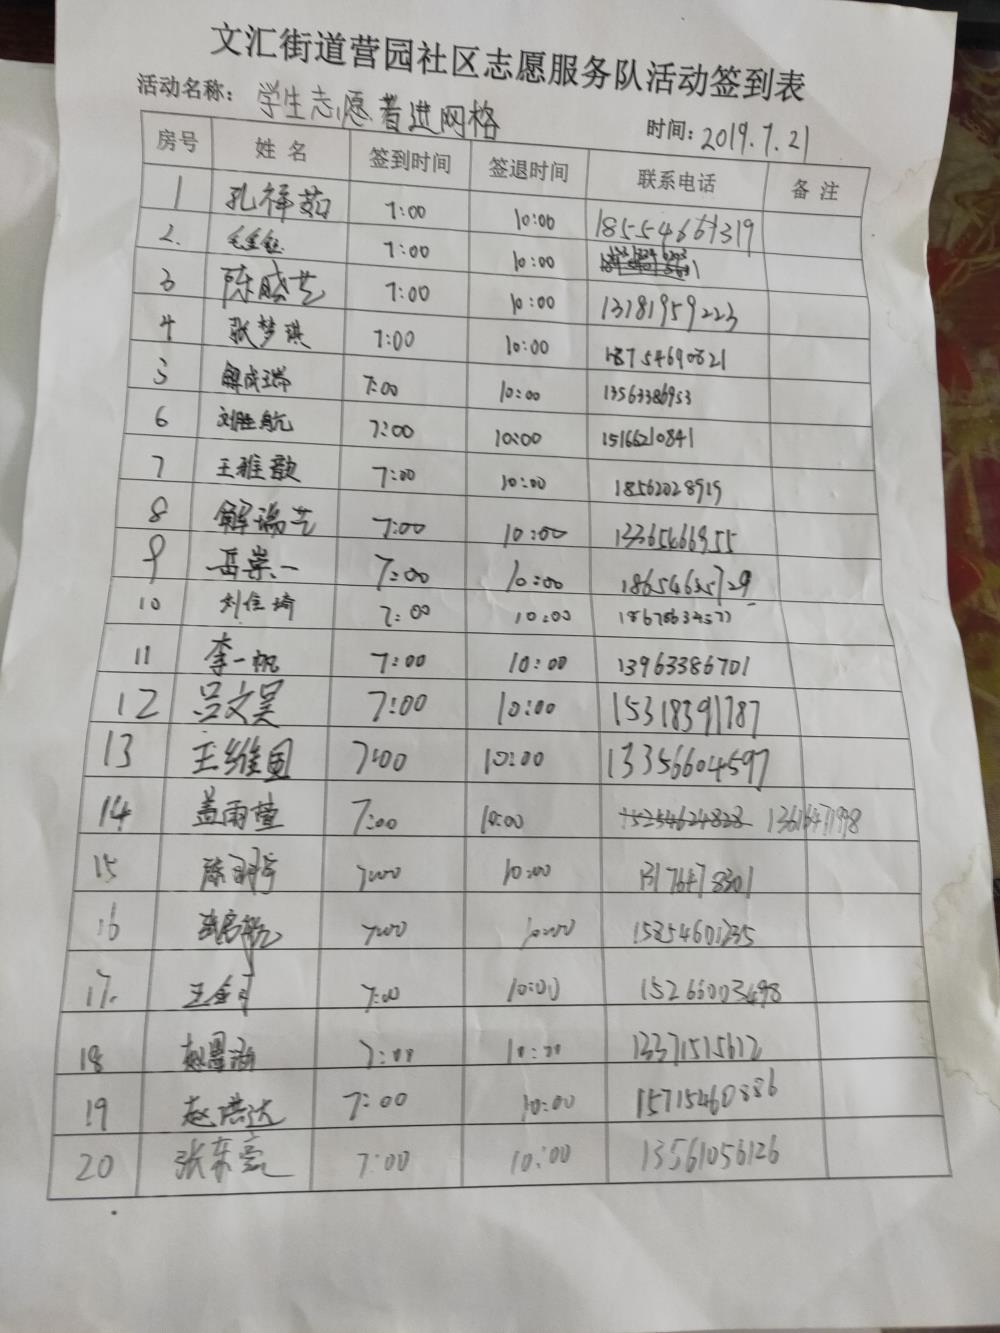 文汇街道营园社区志愿服务队活动签到表
活动名称：学生志愿者进网格
时间：2019.7.21
房号 姓名 签到时间 签退时间 联系电话 备注
1 孔祥茹 7:00 10:00 18554661319
2. 7:00 10:00
3 陈晓艺 7:00 10:00 13181959223
4 张梦琪 7:00 10:00 18754690821
5 解成瑞 7:00 10:00 13563386953
6 刘胜航 7:00 10:00 15166210841
7 王雅歆 7:00 10:00 18562028919
8 解瑞艺 7:00 10:00 13365466955
9 岳崇一 7:00 10:00 18654635729
10 刘佳琦 7:00 10:00
11 李一帆 7:00 10:00 13963386701
12 吕文昊 7:00 10:00 15318391787
13 王维国 7:00 10:00 13356604597
14 盖雨萱 7:00 10:00 15254624828 13616471998
15 7:00 10:00 13176478301
16 7:00 10:00 15854601235
17. 王金 7:00 10:00 15266003498
18 赵墨涵 7:00 10:00 13371515612
19 赵洪达 7:00 10:00 15715460886
20 张东亮 7:00 10:00 13561056126